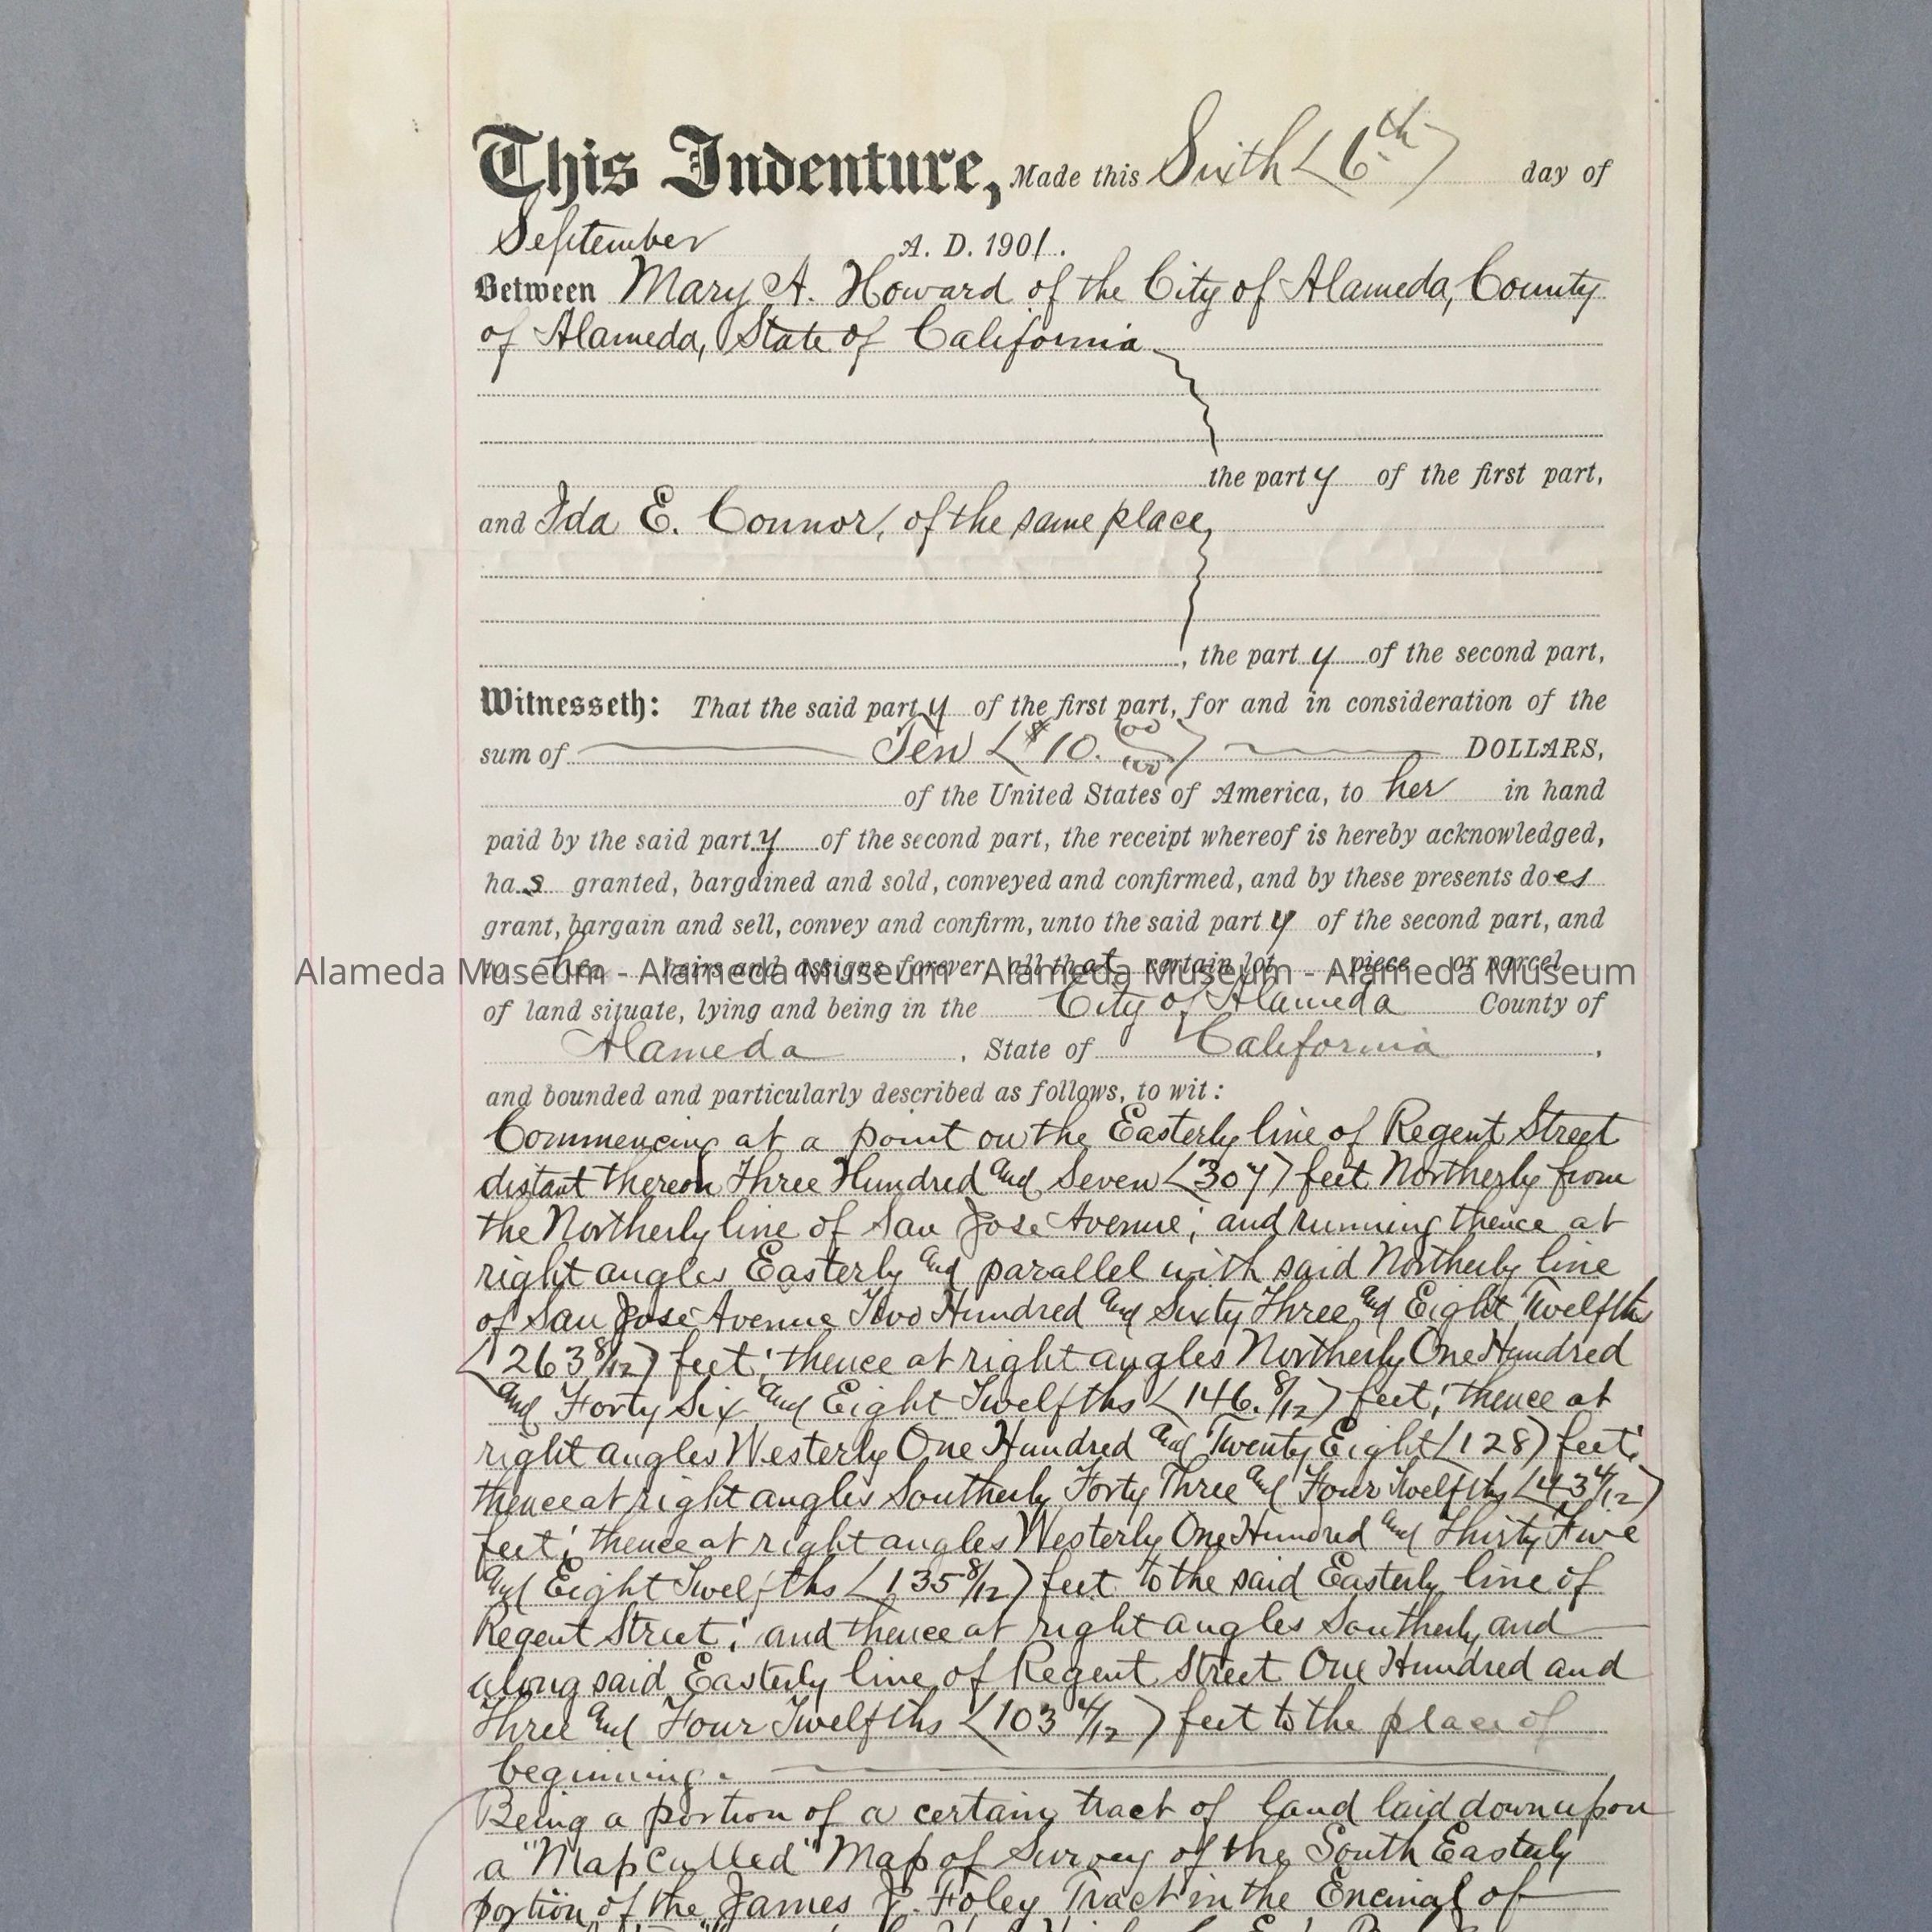 This Indenture, Made this Sixth (6th) day of
September A. D. 1901.
Between Mary A. Howard of the City of Alameda, County
of Alameda, State of California
the party of the first part,
and Ida E. Connor, of the same place,
, the party of the second part,
Witnesseth: That the said party of the first part, for and in consideration of the
sum of Ten ($10. 00/100) DOLLARS,
of the United States of America, to her in hand
paid by the said party of the second part, the receipt whereof is hereby acknowledged,
has granted, bargained and sold, conveyed and confirmed, and by these presents does
grant, bargain and sell, convey and confirm, unto the said party of the second part, and
to her heirs and assigns forever, all that certain lot piece or parcel
Alameda Museum - Alameda Museum - Alameda Museum - Alameda Museum
of land situate, lying and being in the City of Alameda County of
Alameda , State of California ,
and bounded and particularly described as follows, to wit:
Commencing at a point on the Easterly line of Regent Street
distant thereon Three Hundred and Seven (307) feet Northerly from
the Northerly line of San Jose Avenue; and running thence at
right angles Easterly and parallel with said Northerly line
of San Jose Avenue Two Hundred and Sixty Three and Eight Twelfths
(263 8/12) feet; thence at right angles Northerly One Hundred
and Forty Six and Eight Twelfths (146. 8/12) feet; thence at
right angles Westerly One Hundred and Twenty Eight (128) feet;
thence at right angles Southerly Forty Three and Four Twelfths (43 4/12)
feet; thence at right angles Westerly One Hundred and Thirty Five
and Eight Twelfths (135 8/12) feet to the said Easterly line of
Regent Street; and thence at right angles Southerly and
along said Easterly line of Regent Street One Hundred and
Three and Four Twelfths (103 4/12) feet to the place of
beginning.
Being a portion of a certain tract of land laid down upon
a "Map Called" Map of Survey of the South Easterly
portion of the James J. Foley Tract in the Encinal of